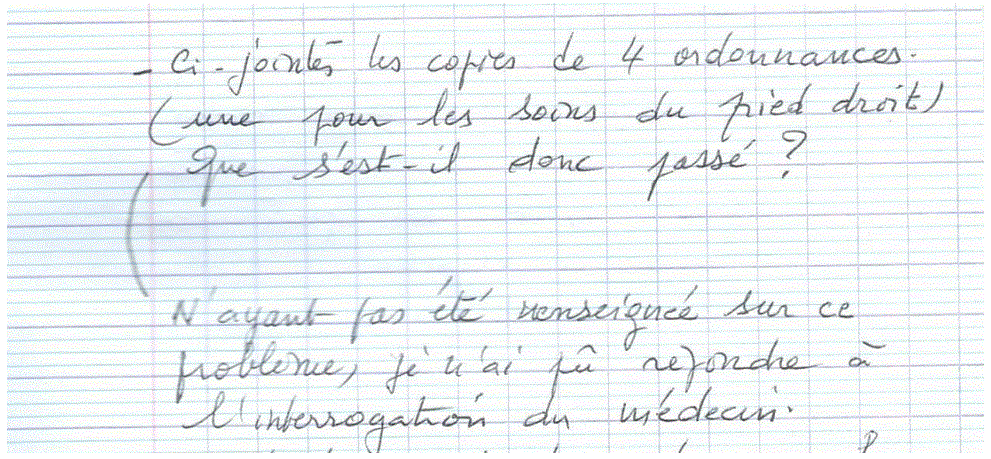 - Ci-jointes les copies de 4 ordonnances.
(une pour les soins du pied droit)
Que s'est-il donc passé ?
N'ayant pas été renseignée sur ce
problème, je n'ai pû répondre à
l'interrogation du médecin.